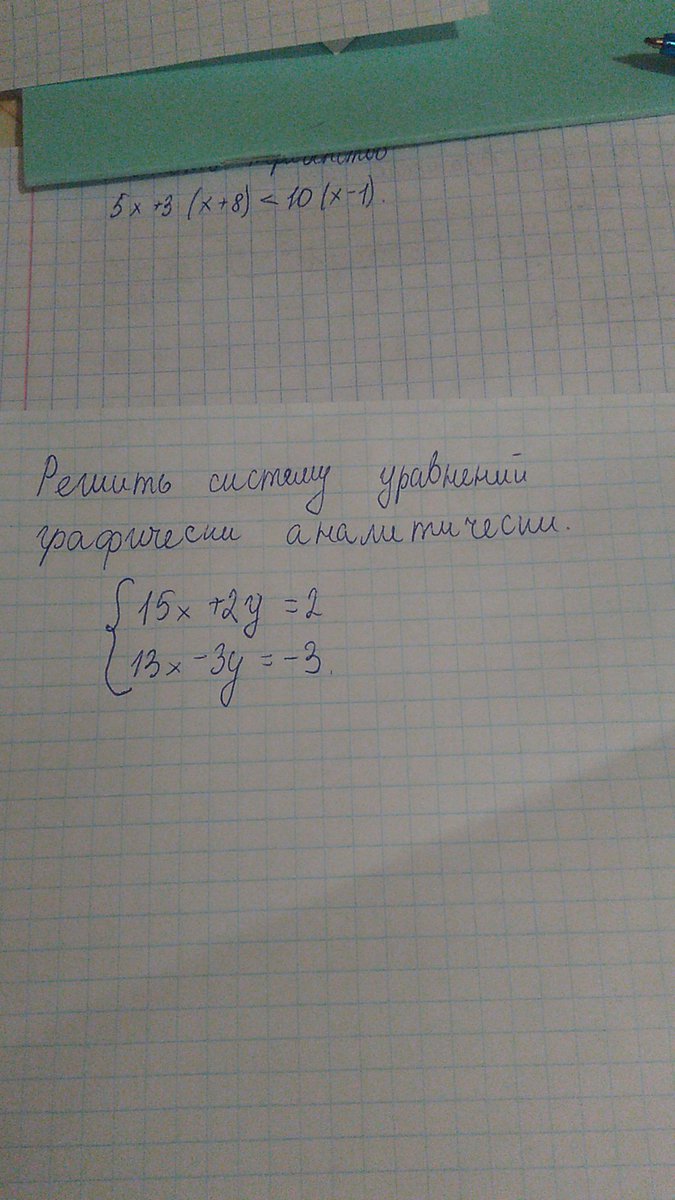 5x+3(x+8)<10(x-1).
Решить систему уравнений
графически аналитически.
15x+2y=2
13x-3y=-3.